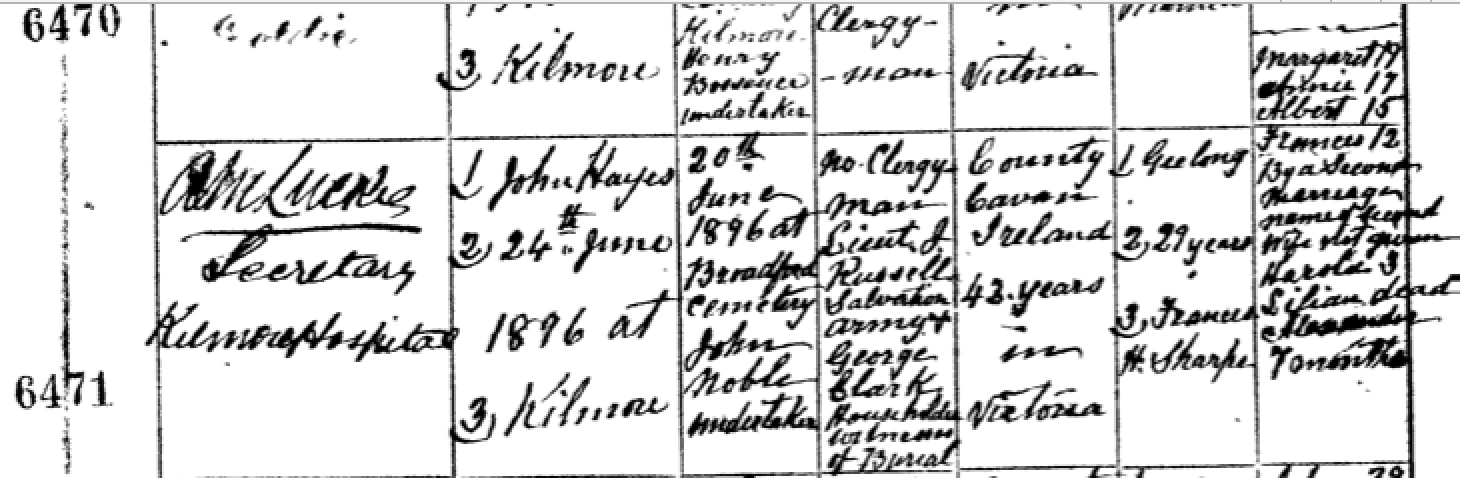 6470
3, Kilmore
Kilmore
Henry
undertaker
Clergy-
-man
Victoria
Margaret 19
Annie 17
Albert 15
6471
Secretary
Kilmore Hospital
1 John Hayes
2, 24th June
1896 at
3, Kilmore
20th
June
1896 at
Broadford
Cemetery
John
Noble
undertaker
No Clergy-
man
Lieut. J
Russell
Salvation
Army +
George
Clark
Householder
witnesses
of Burial
County
Cavan
Ireland
43 years
in
Victoria
1 Geelong
2, 29 years
3, Frances
H. Sharpe
Frances 12
By a Second
Marriage
name of Second
wife not given
Harold 3
Lilian dead
Alexander
7 months